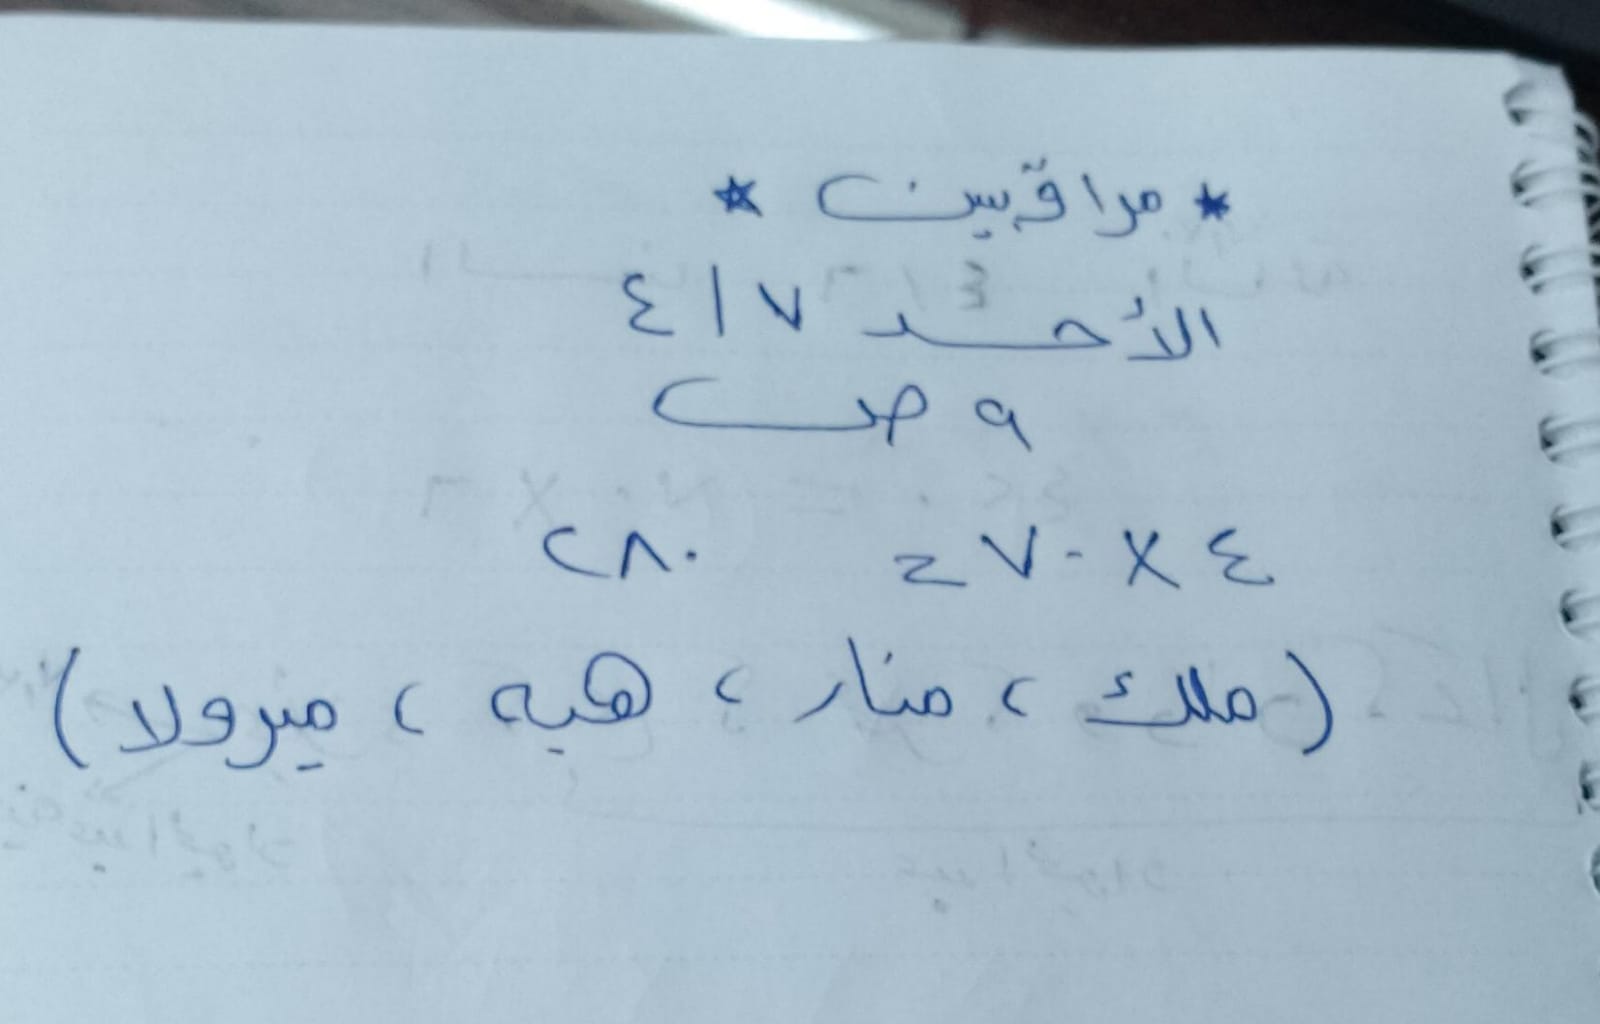 * مراقبين *
الأحد ٤/٧
٩ ص
٤ × ٧٠ = ٢٨٠
(ملك ، منار ، هبه ، ميرولا)